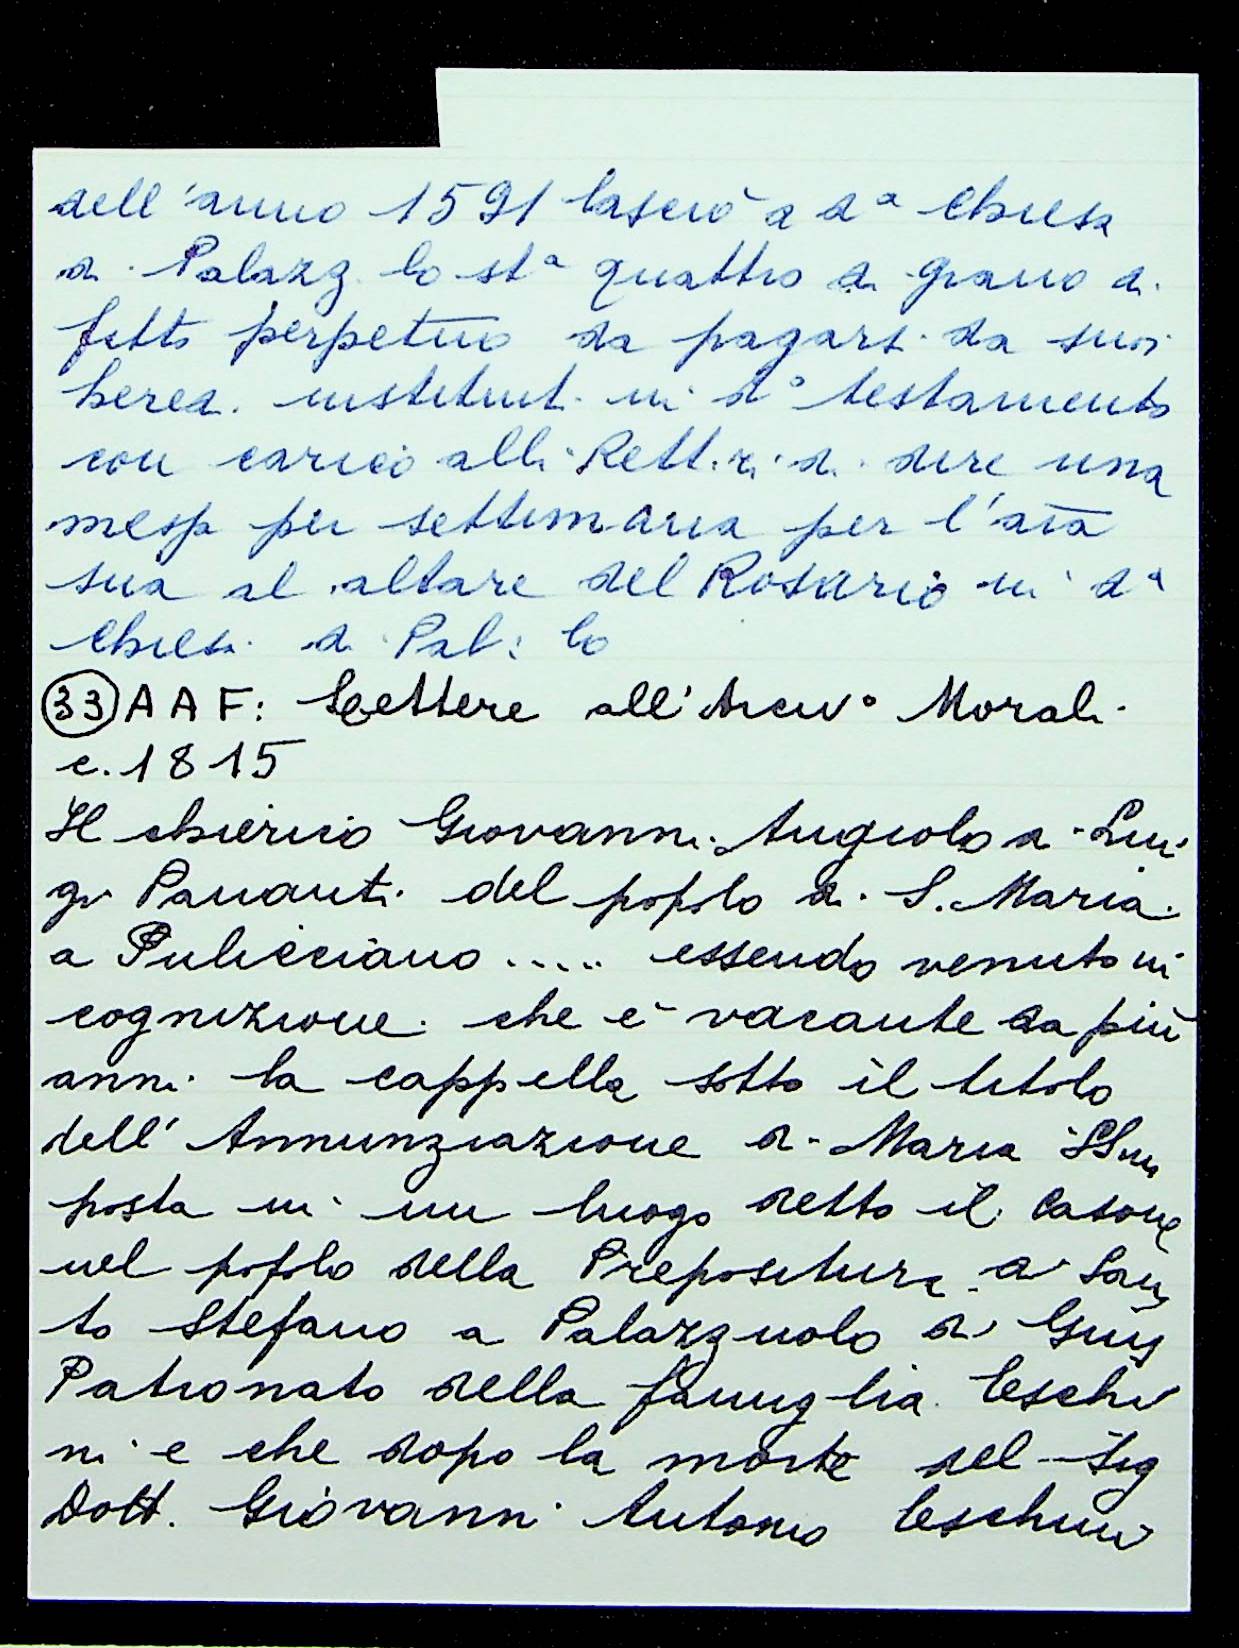 dell'anno 1591 lasciò a dª Chiesa
di Palazz lo stª quattro di grano di
fitto perpetuo da pagarsi da suoi
heredi instituiti in dº testamento
con carico alli Rettori di dire una
messa per settimana per l'aīa
sua al altare del Rosario in dª
Chiesa di Pal: lo
33 A A F: Lettere all'Arcivº Morali
c. 1815
Il chierico Giovanni Angiolo di Lui
gi Pananti del popolo di S. Maria
a Pulicciano ..... essendo venuto in
cognizione che è vacante da più
anni la cappella sotto il titolo
dell'Annunziazione di Maria SSma
posta in un luogo detto il Casone
nel popolo della Prepositura di San
to Stefano a Palazzuolo di Gius
Patronato della famiglia Ceschi
ni e che dopo la morte del Sig
Dott. Giovanni Antonio Ceschini